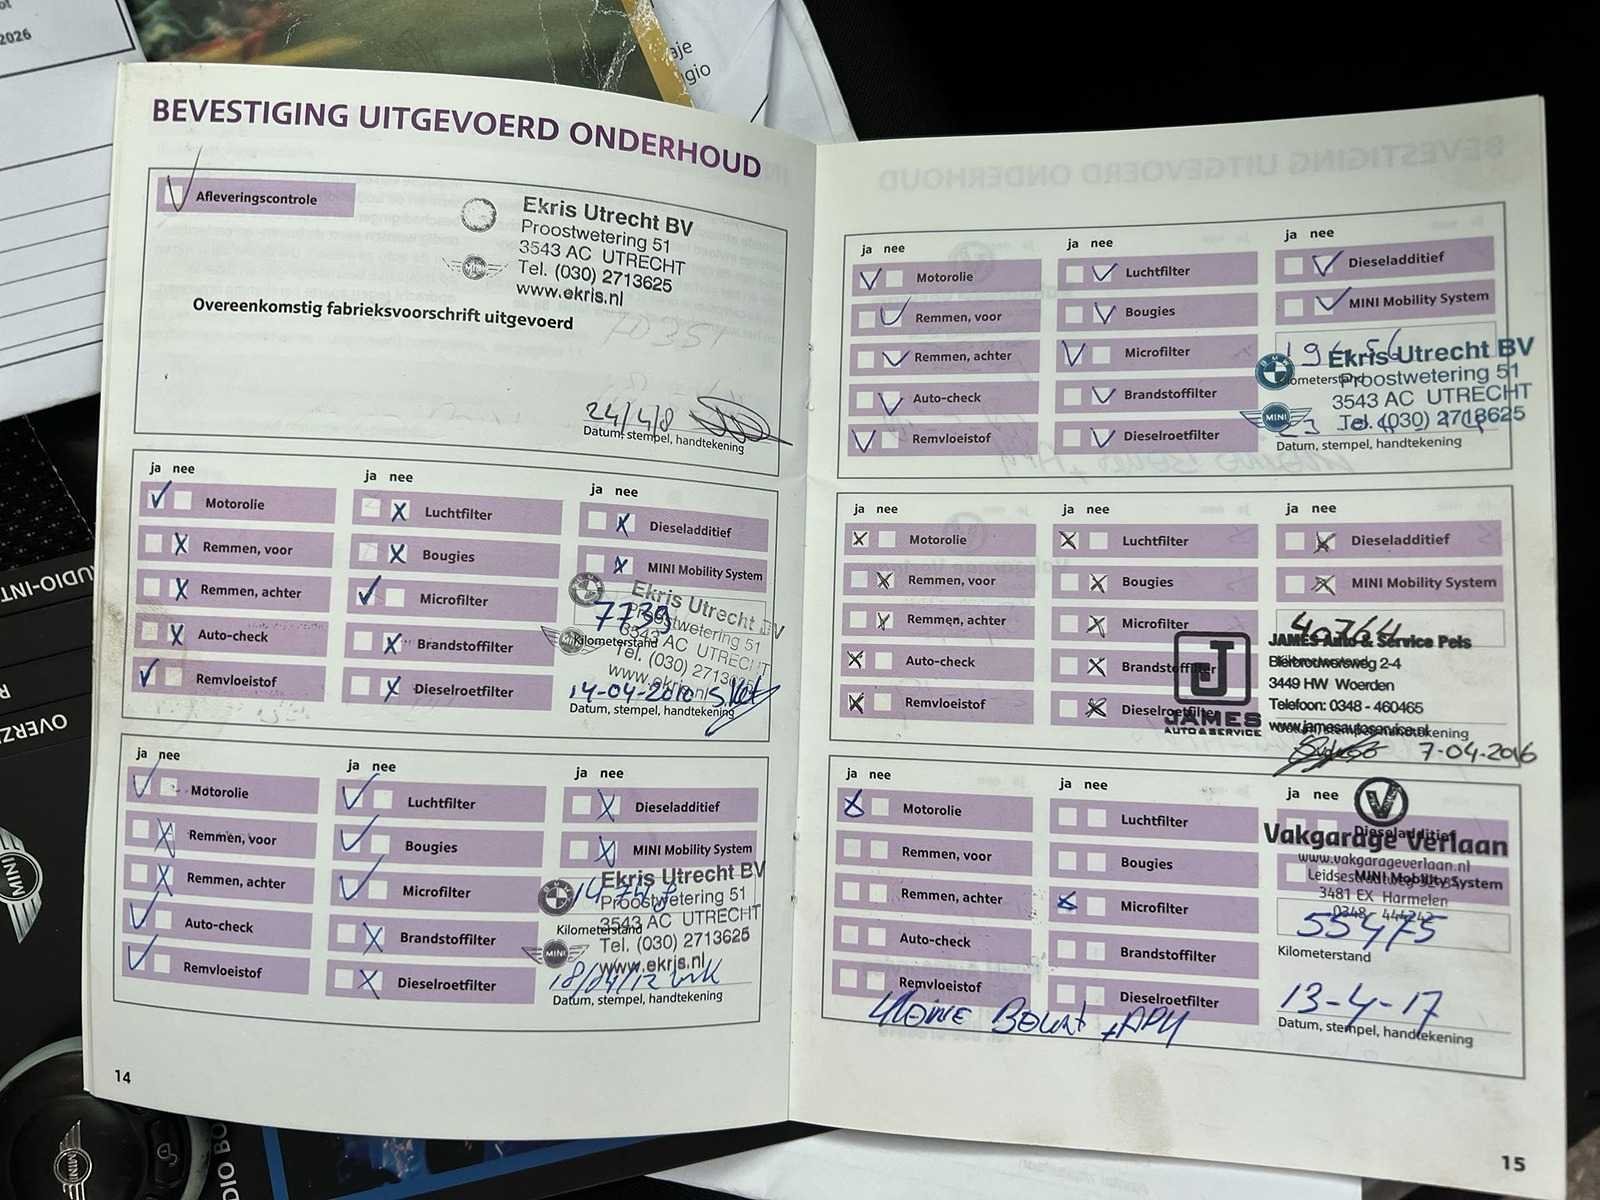 2026
aje
gio
BEVESTIGING UITGEVOERD ONDERHOUD
Afleveringscontrole
Ekris Utrecht BV
Proostwetering 51
3543 AC UTRECHT
Tel. (030) 2713625
www.ekris.nl
MINI
Overeenkomstig fabrieksvoorschrift uitgevoerd
70351
24/4/8
Datum, stempel, handtekening
ja nee
ja nee
ja nee
Motorolie
Luchtfilter
Dieseladditief
Remmen, voor
Bougies
MINI Mobility System
Remmen, achter
Microfilter
Auto-check
Brandstoffilter
Remvloeistof
Dieselroetfilter
Ekris Utrecht BV
7739
Proostwetering 51
Kilometerstand
3543 AC UTRECHT
Tel. (030) 2713625
www.ekris.nl
14-04-2010
Datum, stempel, handtekening
ja nee
ja nee
ja nee
Motorolie
Luchtfilter
Dieseladditief
Remmen, voor
Bougies
MINI Mobility System
Remmen, achter
Microfilter
Auto-check
Brandstoffilter
Remvloeistof
Dieselroetfilter
Ekris Utrecht BV
Proostwetering 51
Kilometerstand
3543 AC UTRECHT
Tel. (030) 2713625
MINI
www.ekris.nl
18/04/12
Datum, stempel, handtekening
14
ja nee
ja nee
ja nee
Motorolie
Luchtfilter
Dieseladditief
Remmen, voor
Bougies
MINI Mobility System
Remmen, achter
Microfilter
Auto-check
Brandstoffilter
Remvloeistof
Dieselroetfilter
BMW
Ekris Utrecht BV
Kilometerstand
Proostwetering 51
3543 AC UTRECHT
MINI
Tel. (030) 2713625
Datum, stempel, handtekening
ja nee
ja nee
ja nee
Motorolie
Luchtfilter
Dieseladditief
Remmen, voor
Bougies
MINI Mobility System
Remmen, achter
Microfilter
Auto-check
Brandstoffilter
Remvloeistof
Dieselroetfilter
40764
J
JAMES
AUTO & SERVICE
JAMES Auto & Service Pels
2-4
3449 HW Woerden
Telefoon: 0348 - 460465
www.jamesautoservice.nl
Datum, stempel, handtekening
7-04-2016
ja nee
ja nee
ja nee
Motorolie
Luchtfilter
Dieseladditief
Remmen, voor
Bougies
MINI Mobility System
Remmen, achter
Microfilter
Auto-check
Brandstoffilter
Remvloeistof
Dieselroetfilter
V
Vakgarage Verlaan
www.vakgarageverlaan.nl
3481 EX Harmelen
55475
Kilometerstand
13-4-17
Datum, stempel, handtekening
Kleine Beurt + APK
15
MINI
MINI